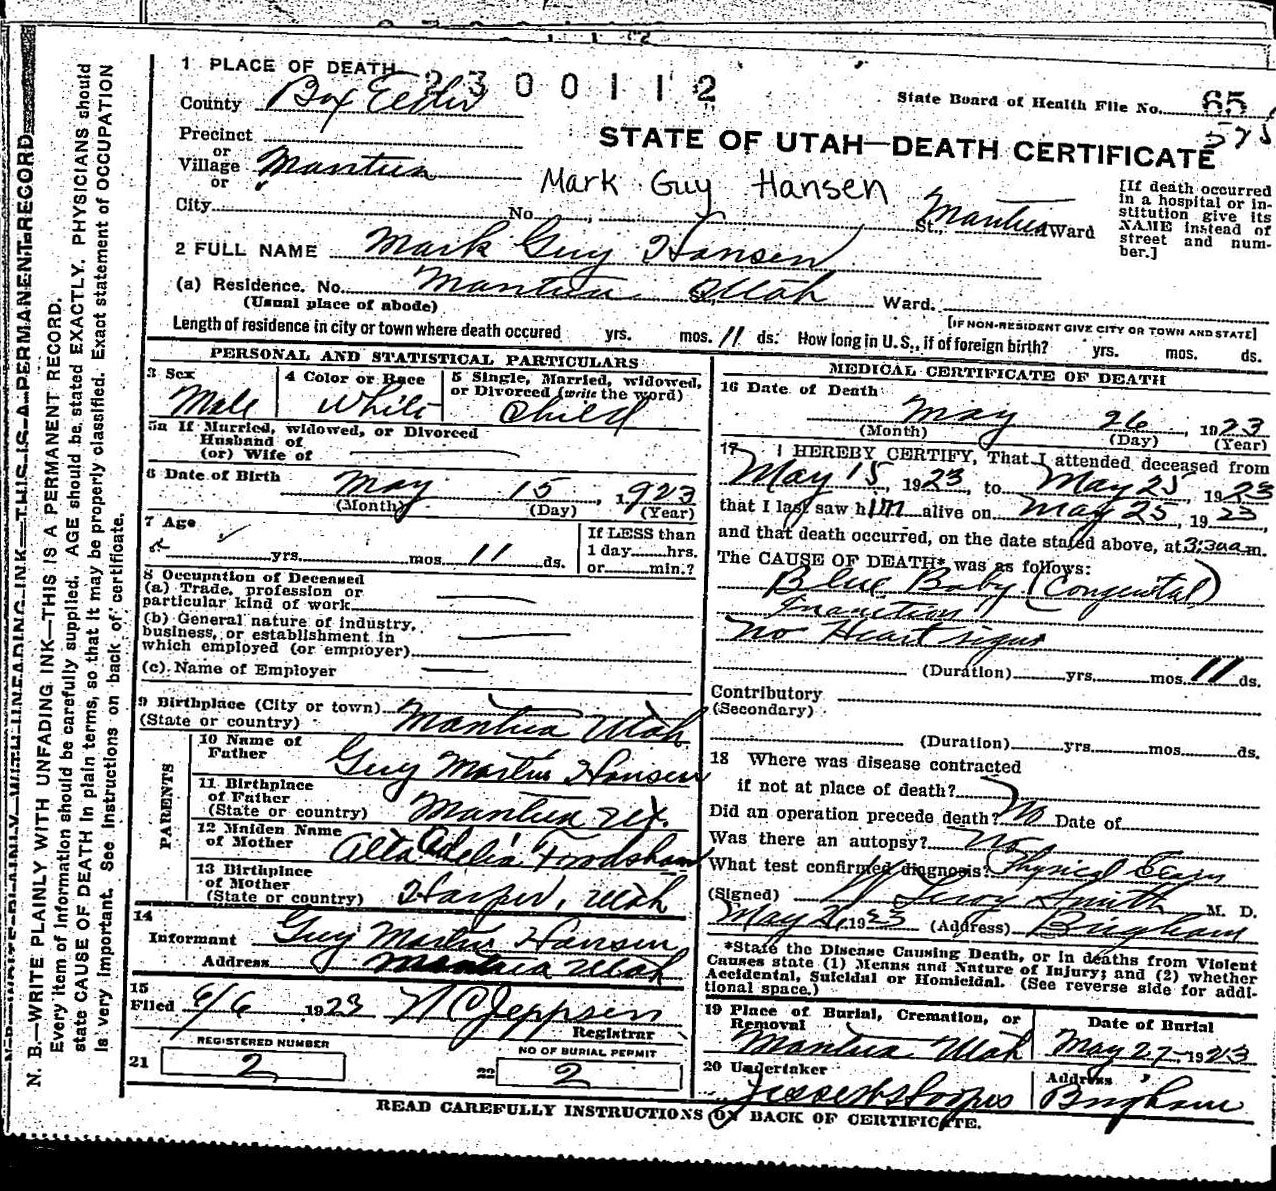 1 PLACE OF DEATH 2300112
County Box Elder
State Board of Health File No. 65
575
Precinct
or
Village Mantua
or
STATE OF UTAH—DEATH CERTIFICATE
Mark Guy Hansen
City No. St., Mantua Ward
[If death occurred in a hospital or institution give its NAME instead of street and number.]
2 FULL NAME Mark Guy Hansen
(a) Residence. No. Mantua Utah Ward.
(Usual place of abode)
[IF NON-RESIDENT GIVE CITY OR TOWN AND STATE]
Length of residence in city or town where death occured yrs. mos. 11 ds. How long in U.S., if of foreign birth? yrs. mos. ds.
PERSONAL AND STATISTICAL PARTICULARS
3 Sex
Male
4 Color or Race
White
5 Single, Married, widowed, or Divorced (write the word)
Child
5a If Married, widowed, or Divorced
Husband of
(or) Wife of
6 Date of Birth May 15, 1923
(Month) (Day) (Year)
7 Age
yrs. mos. 11 ds.
If LESS than
1 day hrs.
or min.?
8 Occupation of Deceased
(a) Trade, profession or
particular kind of work
(b) General nature of industry,
business, or establishment in
which employed (or employer)
(c) Name of Employer
9 Birthplace (City or town) Mantua Utah
(State or country)
PARENTS
10 Name of
Father Guy Martin Hansen
11 Birthplace
of Father
(State or country) Mantua Ut.
12 Maiden Name
of Mother Alta Adelia Frodsham
13 Birthplace
of Mother
(State or country) Harper, Utah
14
Informant Guy Martin Hansen
Address Mantua Utah
15
Filed 6/6 1923 N C Jeppsen
Registrar
REGISTERED NUMBER
21 2
NO OF BURIAL PERMIT
22 2
MEDICAL CERTIFICATE OF DEATH
16 Date of Death
May 26, 1923
(Month) (Day) (Year)
17 I HEREBY CERTIFY, That I attended deceased from
May 15, 1923, to May 25, 1923
that I last saw him alive on May 25, 1923,
and that death occurred, on the date stated above, at 3:30 a.m.
The CAUSE OF DEATH* was as follows:
Blue Baby (Congenital)
Inanition
No Heart signs
(Duration) yrs. mos. 11 ds.
Contributory
(Secondary)
(Duration) yrs. mos. ds.
18 Where was disease contracted
if not at place of death?
Did an operation precede death? No Date of
Was there an autopsy? No
What test confirmed diagnosis? Physical Exam
(Signed) Leroy Smith M. D.
May 26, 1923 (Address) Brigham
*State the Disease Causing Death, or in deaths from Violent
Causes state (1) Means and Nature of Injury; and (2) whether
Accidental, Suicidal or Homicidal. (See reverse side for addi-
tional space.)
19 Place of Burial, Cremation, or
Removal
Mantua Utah
Date of Burial
May 27, 1923
20 Undertaker
Address
Brigham
READ CAREFULLY INSTRUCTIONS ON BACK OF CERTIFICATE.
N. B.—WRITE PLAINLY WITH UNFADING INK—THIS IS A PERMANENT RECORD.
Every item of information should be carefully supplied. AGE should be stated EXACTLY. PHYSICIANS should
state CAUSE OF DEATH in plain terms, so that it may be properly classified. Exact statement of OCCUPATION
is very important. See instructions on back of certificate.